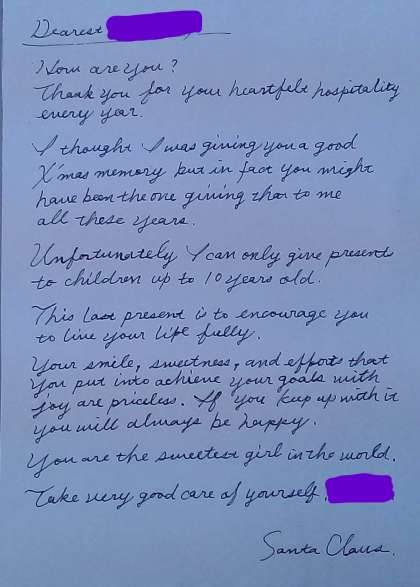 Dearest
How are you?
Thank you for your heartfelt hospitality
every year.
I thought I was giving you a good
X'mas memory but in fact you might
have been the one giving that to me
all these years.
Unfortunately I can only give presents
to children up to 10 years old.
This last present is to encourage you
to live your life fully.
Your smile, sweetness, and efforts that
you put into achieve your goals with
joy are priceless. If you keep up with it
you will always be happy.
You are the sweetest girl in the world.
Take very good care of yourself,
Santa Claus.